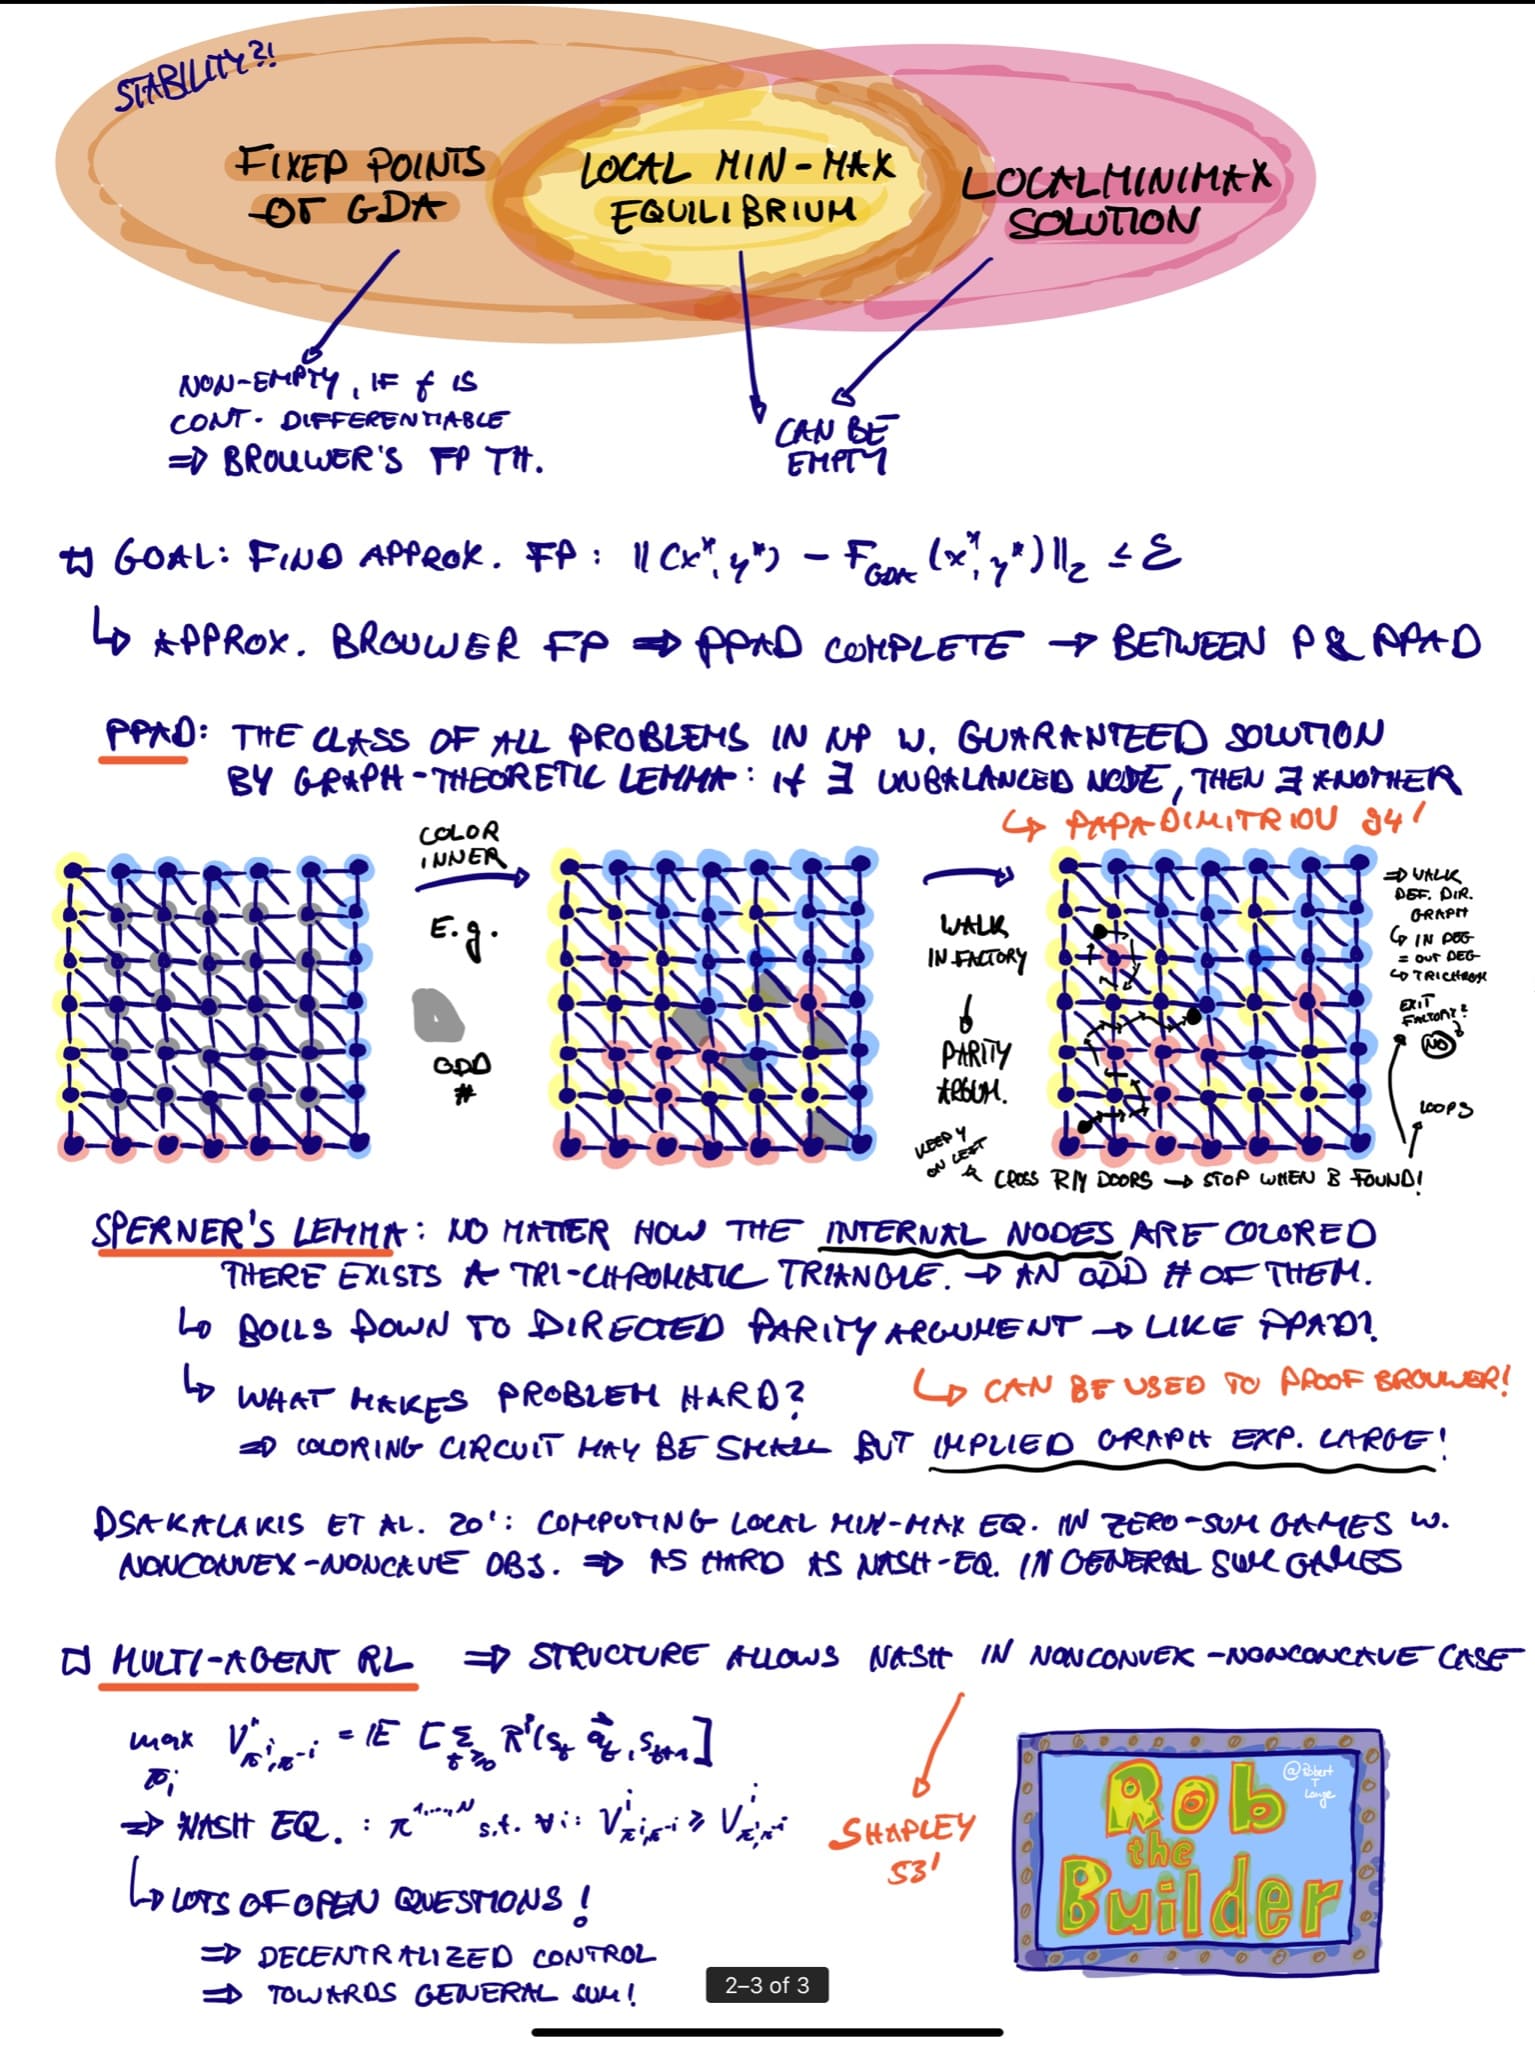 STABILITY?!
FIXED POINTS
OF GDA
LOCAL MIN-MAX
EQUILIBRIUM
LOCAL MINIMAX
SOLUTION
NON-EMPTY, IF f IS
CONT. DIFFERENTIABLE
⇒ BROUWER'S FP TH.
CAN BE
EMPTY
GOAL: FIND APPROX. FP: ||(x*, y*) - F_GDA (x*, y*)||₂ ≤ ε
↳ APPROX. BROUWER FP ⇒ PPAD COMPLETE → BETWEEN P & PPAD
PPAD: THE CLASS OF ALL PROBLEMS IN NP W. GUARANTEED SOLUTION
BY GRAPH-THEORETIC LEMMA: if ∃ UNBALANCED NODE, THEN ∃ ANOTHER
↳ PAPADIMITRIOU 94'
COLOR
INNER
E.g.
ODD
#
WALK
IN FACTORY
PARITY
ARGUM.
⇒ WALK
DEF. DIR.
GRAPH
↳ IN DEG
= OUT DEG
↳ TRICHROM
EXIT
FACTORY?
NO
LOOPS
KEEP Y
ON LEFT
& CROSS R/Y DOORS → STOP WHEN B FOUND!
SPERNER'S LEMMA: NO MATTER HOW THE INTERNAL NODES ARE COLORED
THERE EXISTS A TRI-CHROMATIC TRIANGLE. → AN ODD # OF THEM.
↳ BOILS DOWN TO DIRECTED PARITY ARGUMENT → LIKE PPAD?
↳ WHAT MAKES PROBLEM HARD?
↳ CAN BE USED TO PROOF BROUWER!
⇒ COLORING CIRCUIT MAY BE SMALL BUT IMPLIED GRAPH EXP. LARGE!
DSAKALAKIS ET AL. 20': COMPUTING LOCAL MIN-MAX EQ. IN ZERO-SUM GAMES W.
NONCONVEX-NONCAVE OBJ. ⇒ AS HARD AS NASH-EQ. IN GENERAL SUM GAMES
MULTI-AGENT RL ⇒ STRUCTURE ALLOWS NASH IN NONCONVEX-NONCONCAVE CASE
max V^i_{π^i, π^-i} = 𝔼 [Σ_{t≥0} R^i(s_t, a⃗_t, s_{t+1}]
π_i
⇒ NASH EQ. : π^{1,...,N} s.t. ∀i: V^i_{π^i, π^-i} ≥ V^i_{π'^i, π^-i}
SHAPLEY
53'
↳ LOTS OF OPEN QUESTIONS!
⇒ DECENTRALIZED CONTROL
⇒ TOWARDS GENERAL SUM!
@Robert
T
Lange
Rob
the
Builder
2–3 of 3